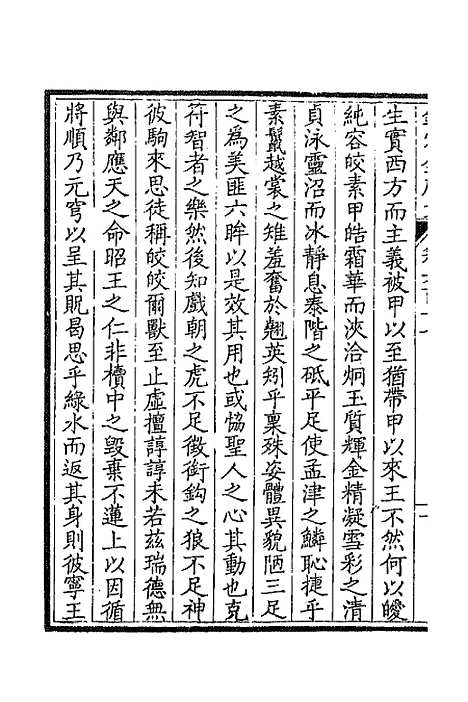 生實西方而主義被甲以至猶帶甲以來王不然何以皦
純容皎素甲皓霜華而浹洽炯玉質輝金精凝雪彩之清
貞泳靈沼而冰靜息泰階之砥平足使孟津之鱗恥捷乎
素鬣越裳之雉羞奮於翹英矧乎稟殊姿體異貌陋三足
之為美匪六眸以是效其用也或恊聖人之心其動也克
符智者之樂然後知戲朝之虎不足徵銜鈎之狼不足神
彼駒來思徒稱皎皎爾獸至止虛擅諄諄未若茲瑞德無
與鄰應天之命昭王之仁非櫝中之毀棄不蓮上以因循
將順乃元穹以呈其貺曷思乎綠水而返其身則彼寧王